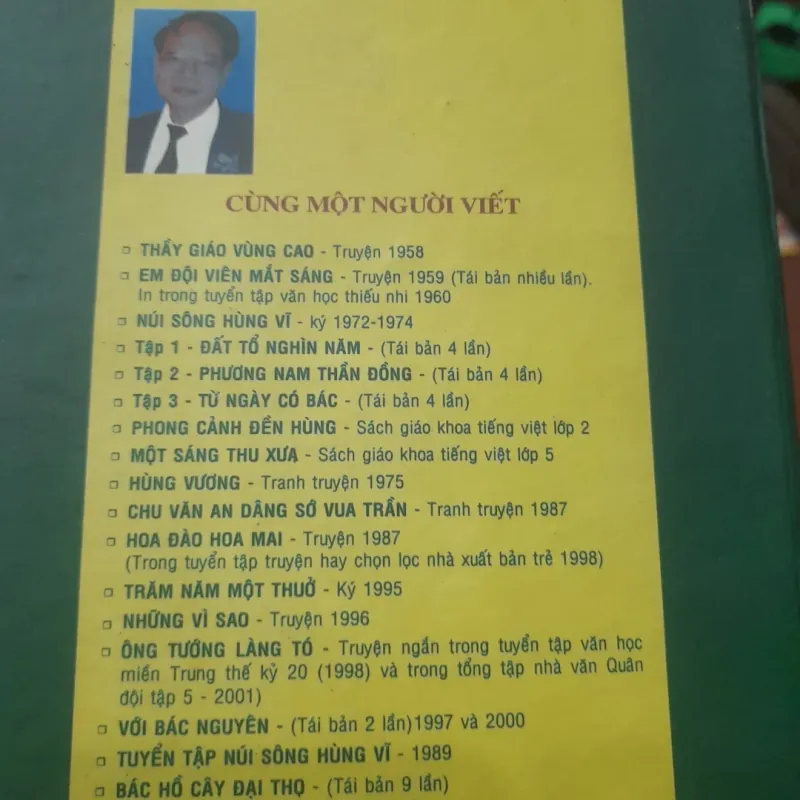 CÙNG MỘT NGƯỜI VIẾT
THẦY GIÁO VÙNG CAO - Truyện 1958
EM ĐỘI VIÊN MẮT SÁNG - Truyện 1959 (Tái bản nhiều lần).
In trong tuyển tập văn học thiếu nhi 1960
NÚI SÔNG HÙNG VĨ - ký 1972-1974
Tập 1 - ĐẤT TỔ NGHÌN NĂM - (Tái bản 4 lần)
Tập 2 - PHƯƠNG NAM THẦN ĐỒNG - (Tái bản 4 lần)
Tập 3 - TỪ NGÀY CÓ BÁC - (Tái bản 4 lần)
PHONG CẢNH ĐỀN HÙNG - Sách giáo khoa tiếng việt lớp 2
MỘT SÁNG THU XƯA - Sách giáo khoa tiếng việt lớp 5
HÙNG VƯƠNG - Tranh truyện 1975
CHU VĂN AN DÂNG SỚ VUA TRẦN - Tranh truyện 1987
HOA ĐÀO HOA MAI - Truyện 1987
(Trong tuyển tập truyện hay chọn lọc nhà xuất bản trẻ 1998)
TRĂM NĂM MỘT THUỞ - Ký 1995
NHỮNG VÌ SAO - Truyện 1996
ÔNG TƯỚNG LÀNG TÓ - Truyện ngắn trong tuyển tập văn học
miền Trung thế kỷ 20 (1998) và trong tổng tập nhà văn Quân
đội tập 5 - 2001)
VỚI BÁC NGUYÊN - (Tái bản 2 lần)1997 và 2000
TUYỂN TẬP NÚI SÔNG HÙNG VĨ - 1989
BÁC HỒ CÂY ĐẠI THỌ - (Tái bản 9 lần)